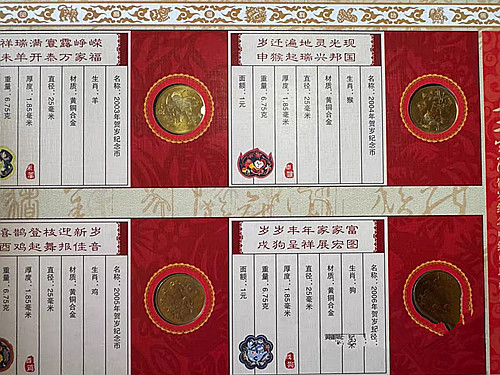 祥瑞满寰露峥嵘
未羊开泰万家福
名称：2003年贺岁纪念币
生肖：羊
材质：黄铜合金
直径：25毫米
厚度：1.85毫米
重量：6.75克
岁迁遍地灵光现
申猴起瑞兴邦国
名称：2004年贺岁纪念币
生肖：猴
材质：黄铜合金
直径：25毫米
厚度：1.85毫米
重量：6.75克
面额：1元
喜鹊登枝迎新岁
酉鸡起舞报佳音
名称：2005年贺岁纪念币
生肖：鸡
材质：黄铜合金
直径：25毫米
厚度：1.85毫米
重量：6.75克
岁岁丰年家家富
戌狗呈祥展宏图
名称：2006年贺岁纪
生肖：狗
材质：黄铜合金
直径：25毫米
厚度：1.85毫米
重量：6.75克
面额：1元